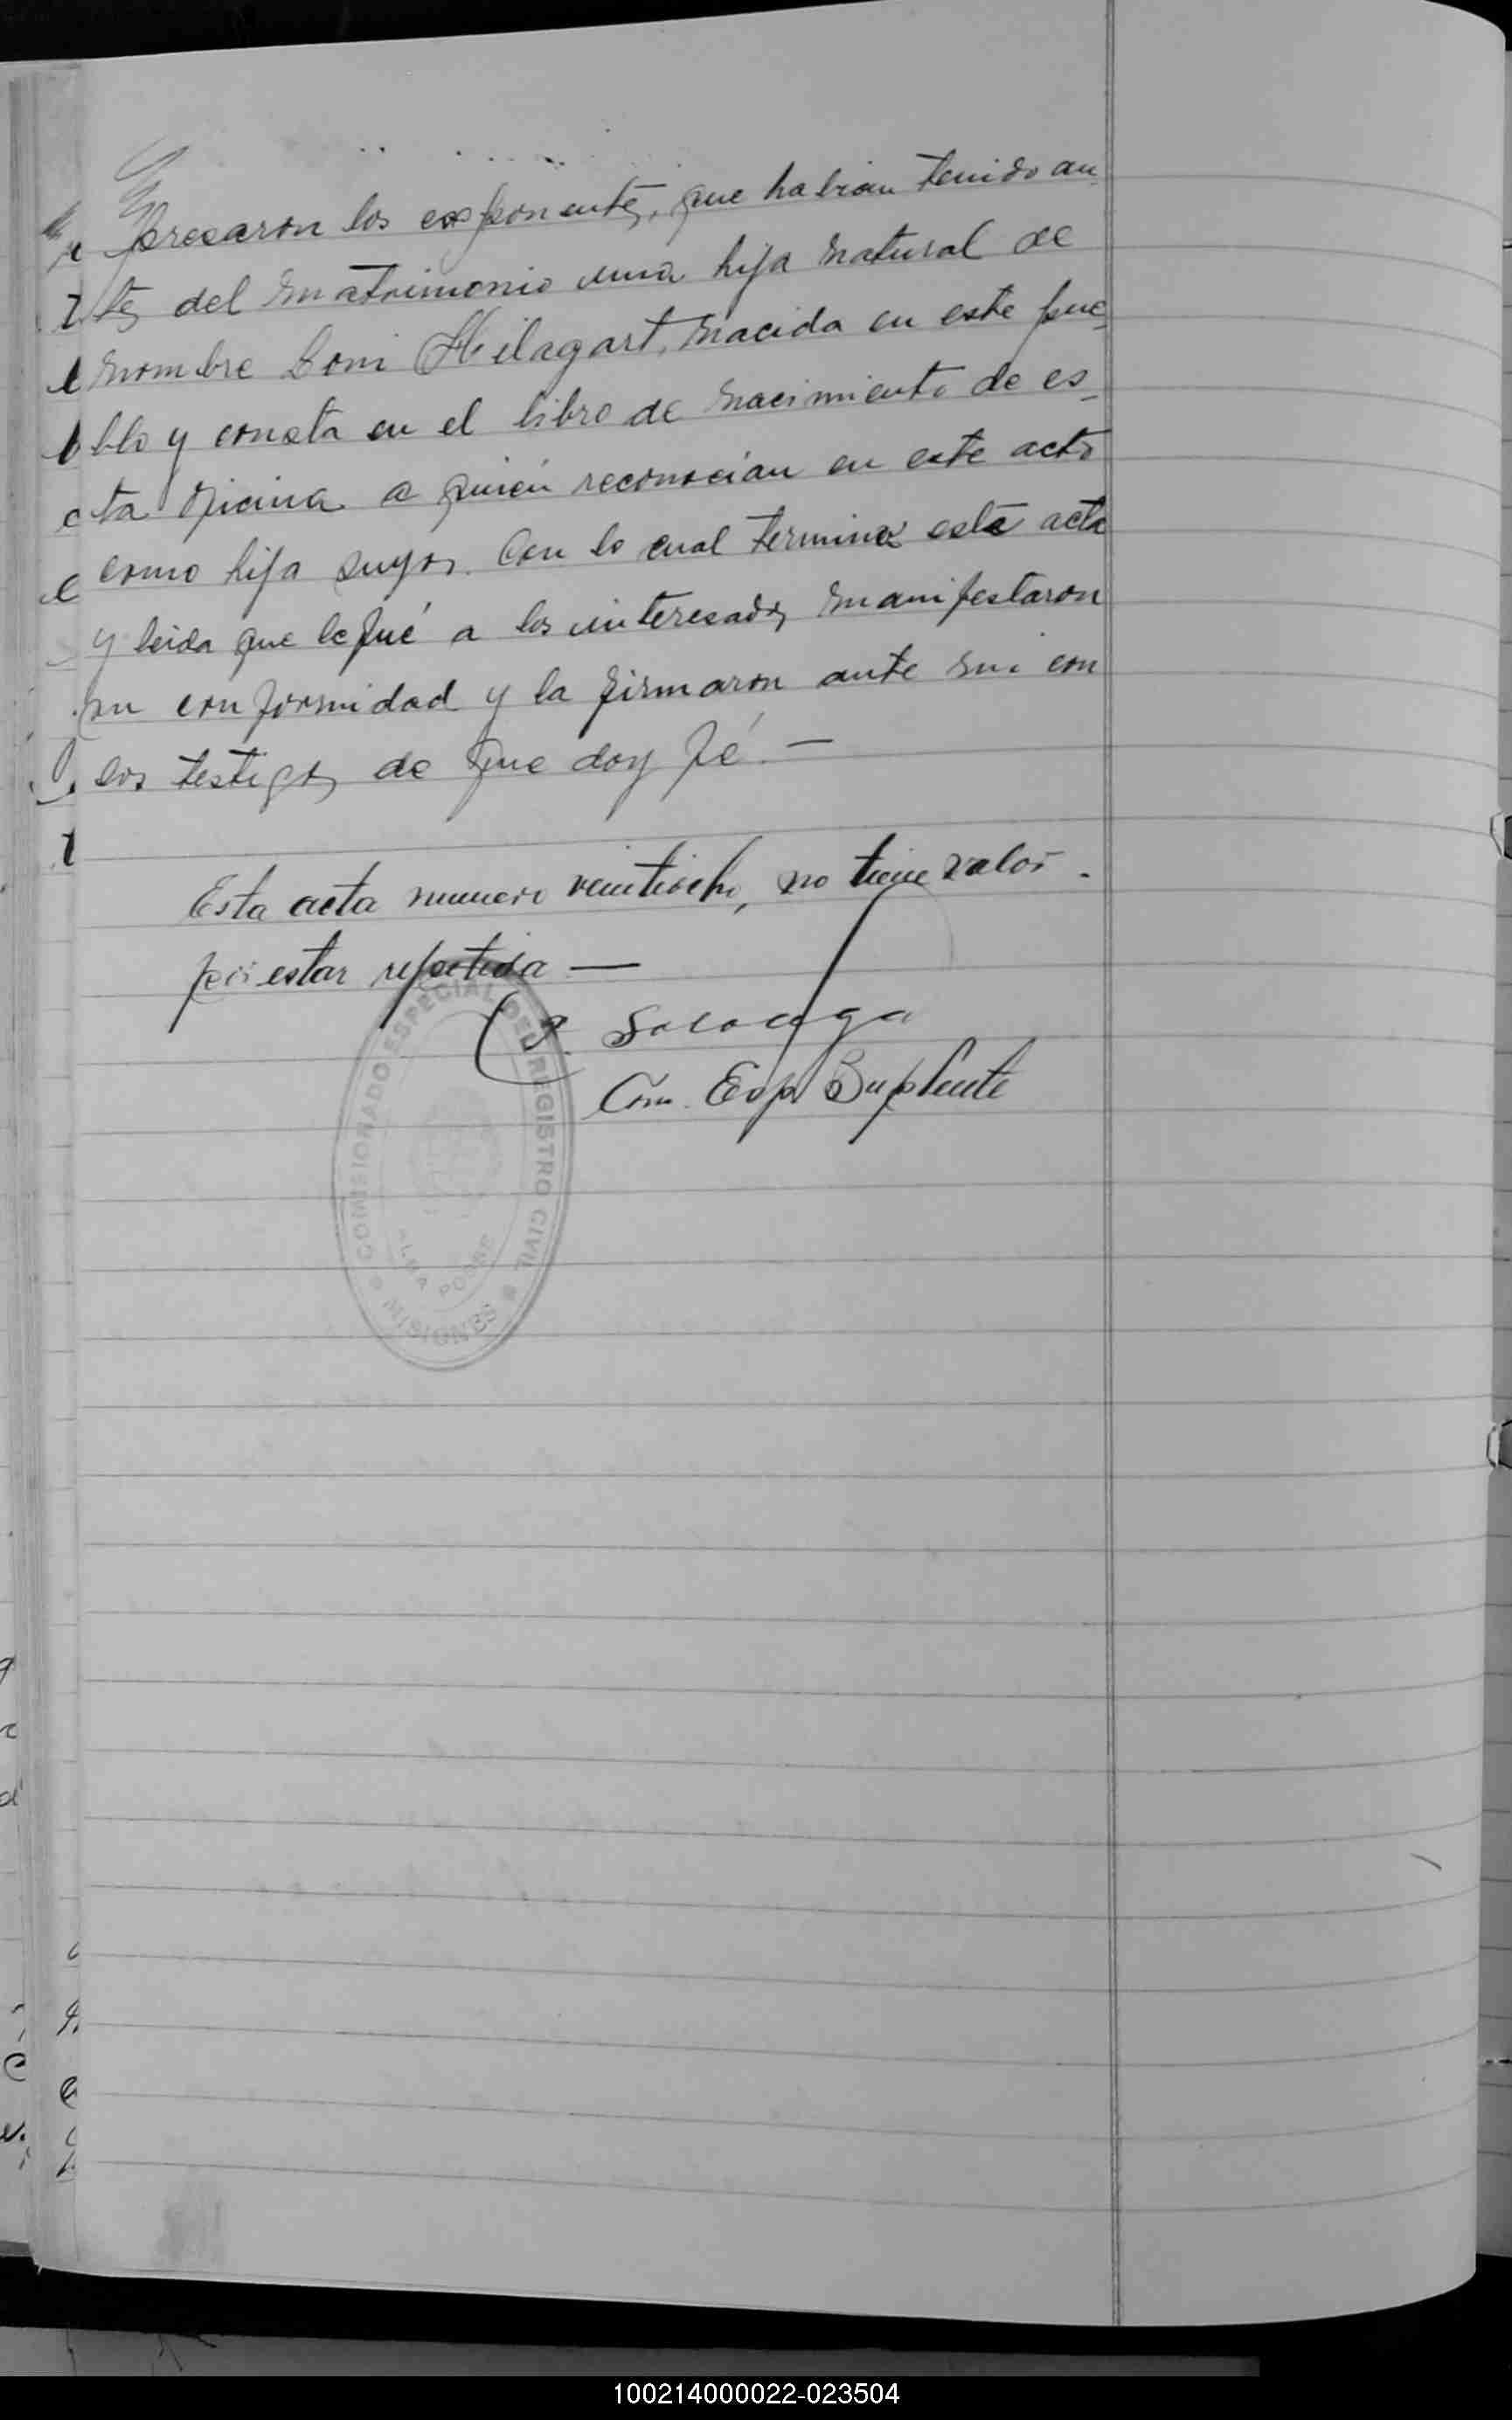 presaron los exponentes, que habian tenido an_
tes del matrimonio una hija natural de
nombre Loni Hilagart, nacida en este pue_
blo y consta en el libro de nacimiento de es_
ta oficina a quién reconocian en este acto
como hija suyos. Con lo cual termina esta acta
y leida que le fué a los interesados manifestaron
su conformidad y la firmaron ante mi con
los testigos de que doy fé. —
Esta acta numero veintiocho, no tiene valor
por estar repetida —
Com. Esp. Suplente
COMISIONADO ESPECIAL DEL REGISTRO CIVIL
MISIONES
100214000022-023504